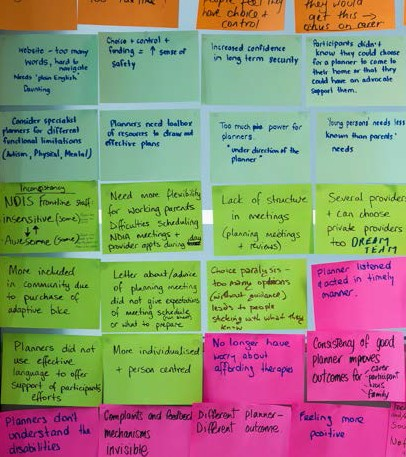 have choice +
control
they would
get this →
Website - too many
words, hard to
navigate
Needs 'plain English'
Daunting
Choice + control +
funding = ↑ sense of
safety
Increased confidence
in long term security
Participants didn't
know they could choose
for a planner to come to
their home or that they
could have an advocate
support them.
Consider specialist
planners for different
functional limitations
(Autism, Physical, Mental)
Planners need toolbox
of resources to draw out
effective plans
Too much power for
planners.
"under direction of the
planner"
'Young persons' needs less
known than parents'
needs
Inconsistency
NDIS frontline staff:
insensitive (some)
↓↑
Awesome (some)
Need more flexibility
for working parents
Difficulties scheduling
NDIA meetings +
provider appts during
Lack of structure
in meetings
(planning meetings
+ reviews)
Several providers
+ can choose
private providers
too DREAM
TEAM
More included
in community due
to purchase of
adaptive bike
Letter about/advice
of planning meeting
did not give expectations
of meeting schedule
or what to prepare
Choice paralysis -
too many options
(without guidance)
leads to people
sticking with what they
know
Planner listened
+ acted in timely
manner.
Planners did not
use effective
language to offer
support of participants
efforts
More individualised
+ person centred
No longer have
worry about
affording therapies
Consistency of good
planner improves
outcomes for - carer
participant
family
Planners don't
understand the
disabilities
Complaints and feedback
mechanisms
invisible
Different planner -
Different outcome
Feeling more
positive